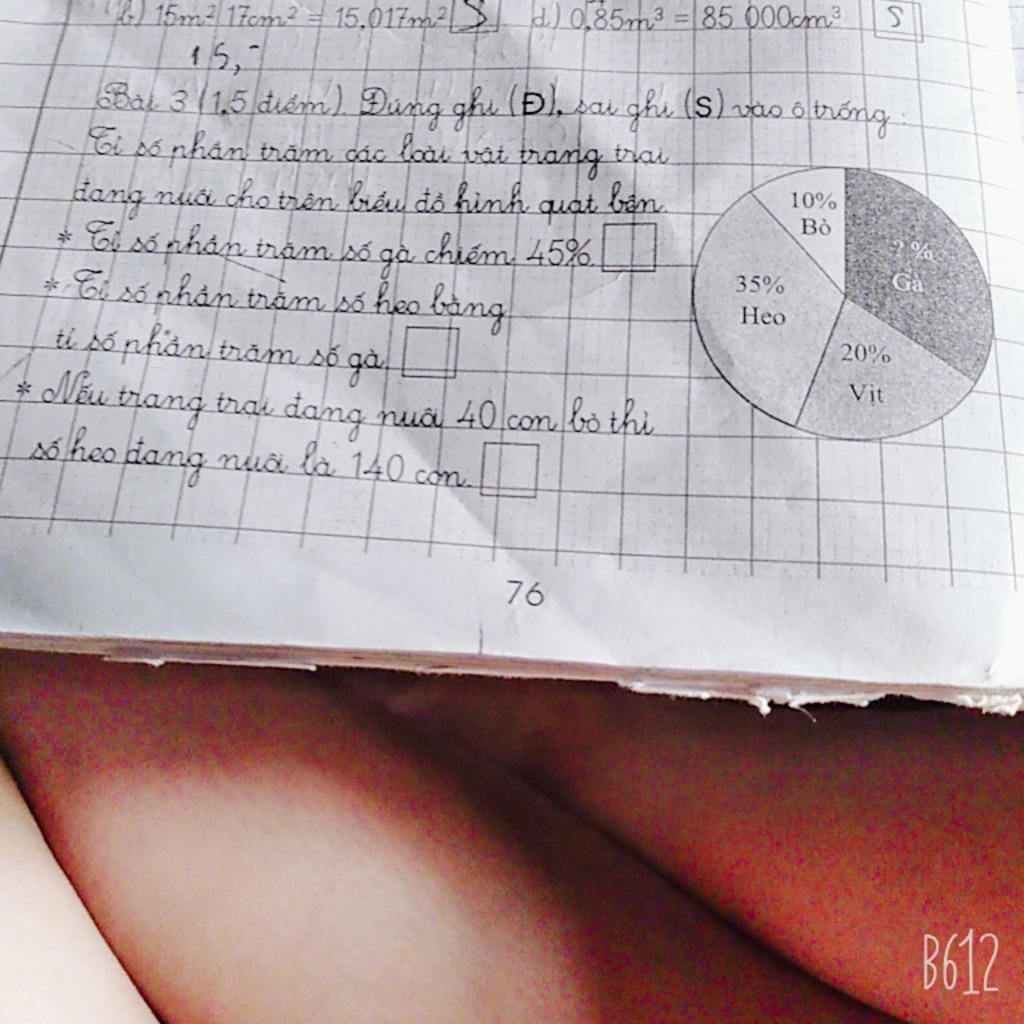 b.) 15m² 17cm² = 15,017m² S d.) 0,85m³ = 85 000cm³ S
15,-
Bài 3 (1,5 điểm). Đúng ghi (Đ), sai ghi (S) vào ô trống.
Tỉ số phần trăm các loài vật trang trại
đang nuôi cho trên biểu đồ hình quạt bên.
* Tỉ số phần trăm số gà chiếm 45%.
* Tỉ số phần trăm số heo bằng
tỉ số phần trăm số gà.
* Nếu trang trại đang nuôi 40 con bò thì
số heo đang nuôi là 140 con.
10%
Bò
? %
Gà
35%
Heo
20%
Vịt
76
B612